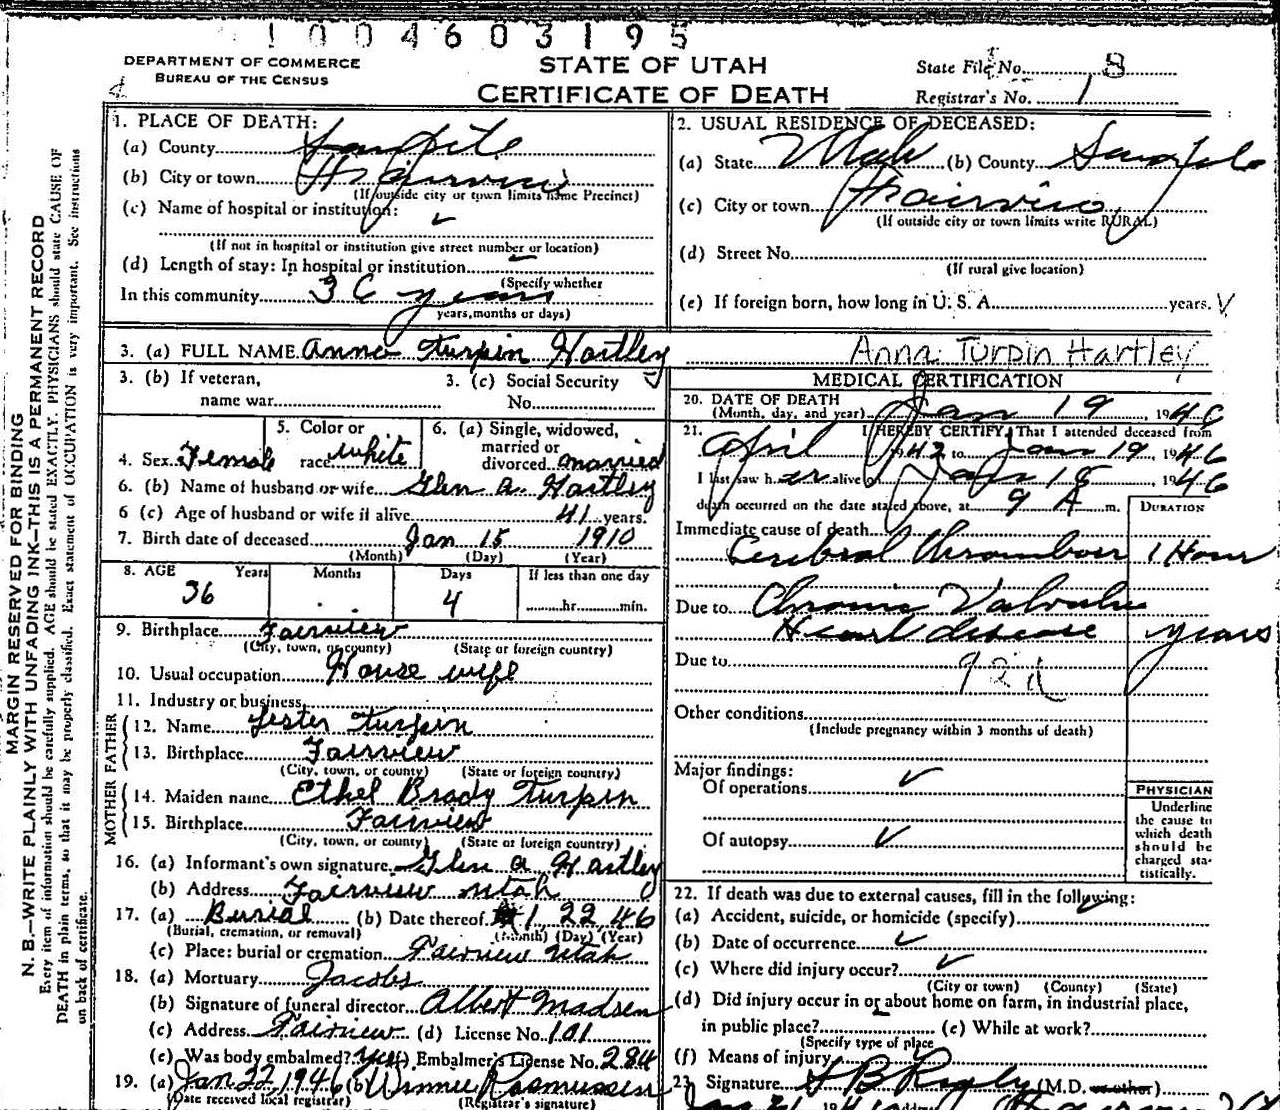 1004603195
DEPARTMENT OF COMMERCE
BUREAU OF THE CENSUS
STATE OF UTAH
CERTIFICATE OF DEATH
State File No. 8
Registrar's No. 1
MARGIN RESERVED FOR BINDING
N. B.—WRITE PLAINLY WITH UNFADING INK—THIS IS A PERMANENT RECORD
Every item of information should be carefully supplied. AGE should be stated EXACTLY. PHYSICIANS should state CAUSE OF
DEATH in plain terms, so that it may be properly classified. Exact statement of OCCUPATION is very important. See instructions
on back of certificate.
1. PLACE OF DEATH:
(a) County Sanpete
(b) City or town Fairview
(If outside city or town limits name Precinct)
(c) Name of hospital or institution:
(If not in hospital or institution give street number or location)
(d) Length of stay: In hospital or institution
(Specify whether
In this community 36 years
years, months or days)
2. USUAL RESIDENCE OF DECEASED:
(a) State Utah (b) County Sanpete
(c) City or town Fairview
(If outside city or town limits write RURAL)
(d) Street No.
(If rural give location)
(e) If foreign born, how long in U. S. A. years.
3. (a) FULL NAME Anna Turpin Hartley Anna Turpin Hartley
3. (b) If veteran,
name war
3. (c) Social Security
No.
4. Sex Female
5. Color or
race white
6. (a) Single, widowed,
married or
divorced married
6. (b) Name of husband or wife Glen A. Hartley
6 (c) Age of husband or wife if alive 41 years.
7. Birth date of deceased Jan 15 1910
(Month) (Day) (Year)
8. AGE Years Months Days If less than one day
36 4 hr. min.
9. Birthplace Fairview
(City, town, or county) (State or foreign country)
10. Usual occupation House wife
11. Industry or business
FATHER
12. Name Lester Turpin
13. Birthplace Fairview
(City, town, or county) (State or foreign country)
MOTHER
14. Maiden name Ethel Brady Turpin
15. Birthplace Fairview
(City, town, or county) (State or foreign country)
16. (a) Informant's own signature Glen A Hartley
(b) Address Fairview Utah
17. (a) Burial (b) Date thereof 1 22 46
(Burial, cremation, or removal) (Month) (Day) (Year)
(c) Place: burial or cremation Fairview Utah
18. (a) Mortuary Jacobs
(b) Signature of funeral director Albert Madsen
(c) Address Fairview (d) License No. 101
(e) Was body embalmed? yes (f) Embalmer's License No. 284
19. (a) Jan 22, 1946 (b) Winnie Rasmussen
(Date received local registrar) (Registrar's signature)
MEDICAL CERTIFICATION
20. DATE OF DEATH
(Month, day, and year) Jan 19, 1946
21. I HEREBY CERTIFY, That I attended deceased from
April 1942 to Jan 19, 1946
I last saw her alive Jan 18, 1946
death occurred on the date stated above, at 9 A m.
DURATION
Immediate cause of death
Cerebral Thrombosis 1 Hour
Due to Chronic Valvular
Heart disease years
Due to 92d
Other conditions
(Include pregnancy within 3 months of death)
Major findings:
Of operations
Of autopsy
PHYSICIAN
Underline
the cause to
which death
should be
charged sta-
tistically.
22. If death was due to external causes, fill in the following:
(a) Accident, suicide, or homicide (specify)
(b) Date of occurrence
(c) Where did injury occur?
(City or town) (County) (State)
(d) Did injury occur in or about home on farm, in industrial place,
in public place? (e) While at work?
(Specify type of place
(f) Means of injury
23. Signature (M.D. or other)